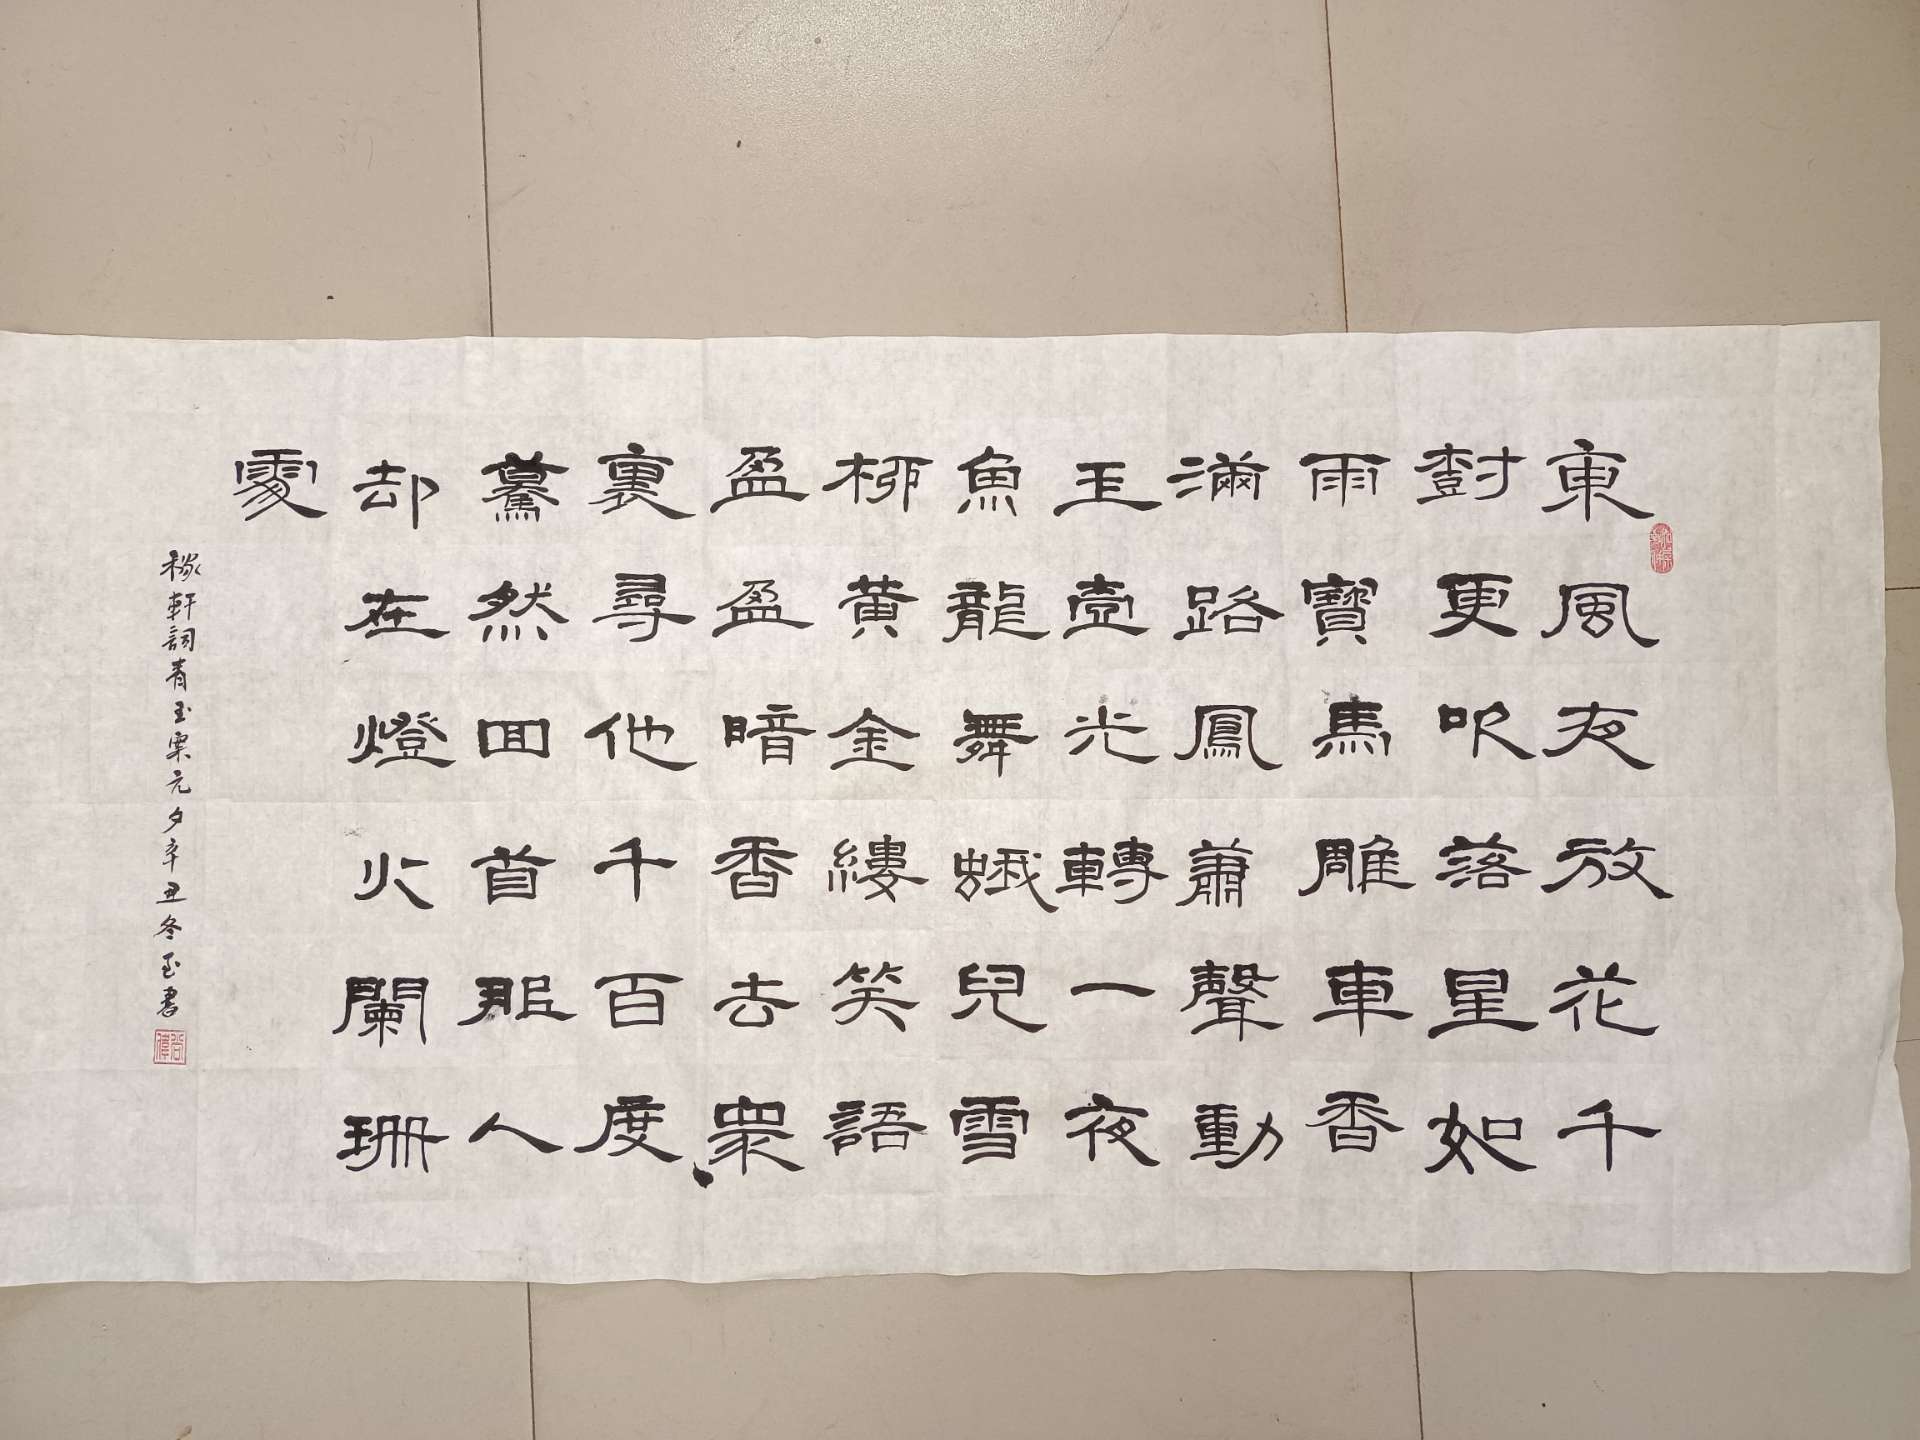 東風夜放花千
尌更吹落星如
雨寶馬雕車香
滿路鳳蕭聲動
玉壺光轉一夜
魚龍舞蛾兒雪
柳黃金縷笑語
盈盈暗香去眾
裏尋他千百度
驀然回首那人
却在燈火闌珊
處
稼軒詞青玉案元夕辛丑冬至書